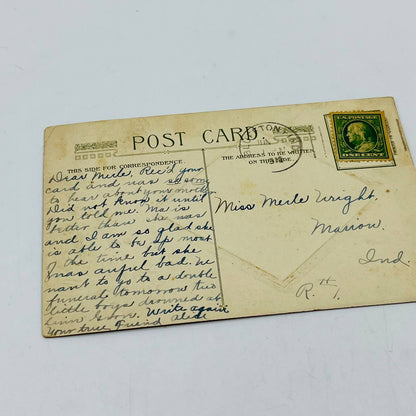 POST CARD.
THIS SIDE FOR CORRESPONDENCE.
THE ADDRESS TO BE WRITTEN
ON THIS SIDE.
U.S. POSTAGE
ONE CENT
Dear Merle, Rec'd your
card and was so sorry
to hear about your mother
Did not know it until
you told me. Ma is
better than she was
and I am so glad she
is able to be up most
of the time but she
was awful bad. We
want to go to a double
funeral tomorrow two
little boys drowned at
Linn Grove. Write again
Your true friend
Miss Merle Wright,
Marion,
Ind.